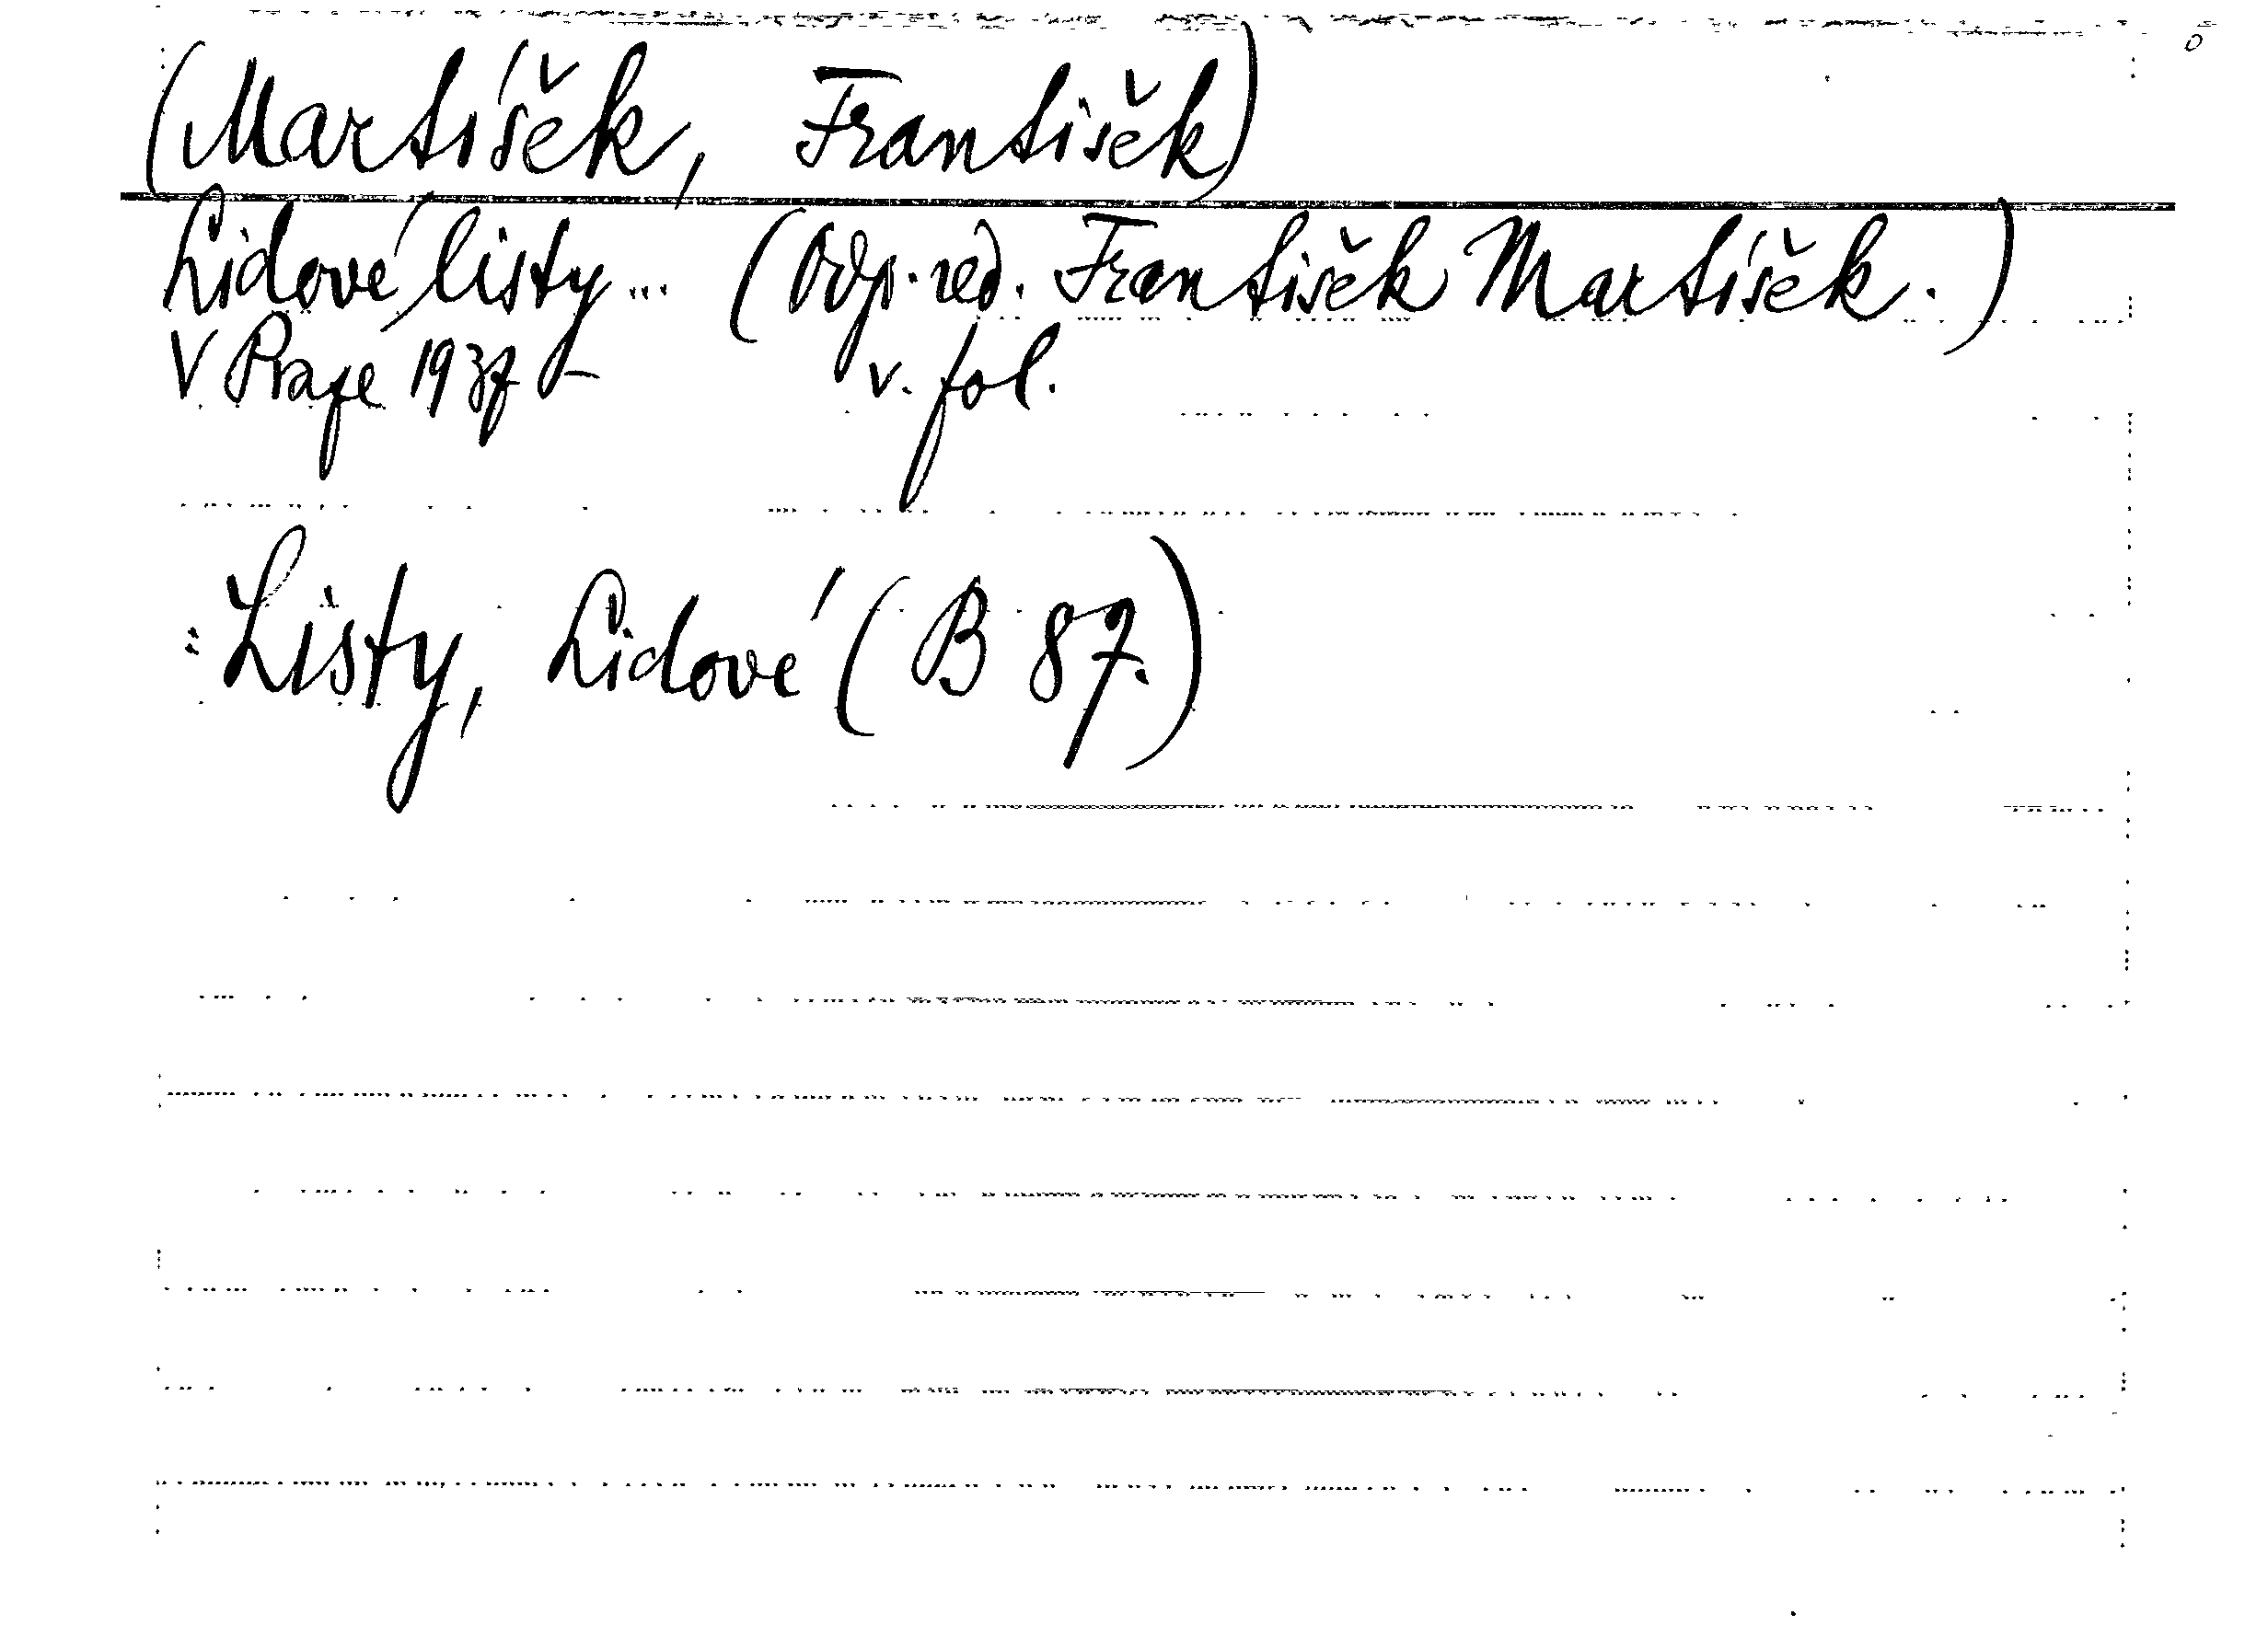 (Martíšek, František)
Lidové listy... (Odp. red. František Martíšek.)
V Praze 1937 - v. fol.
: Listy, Lidové (B 87.)